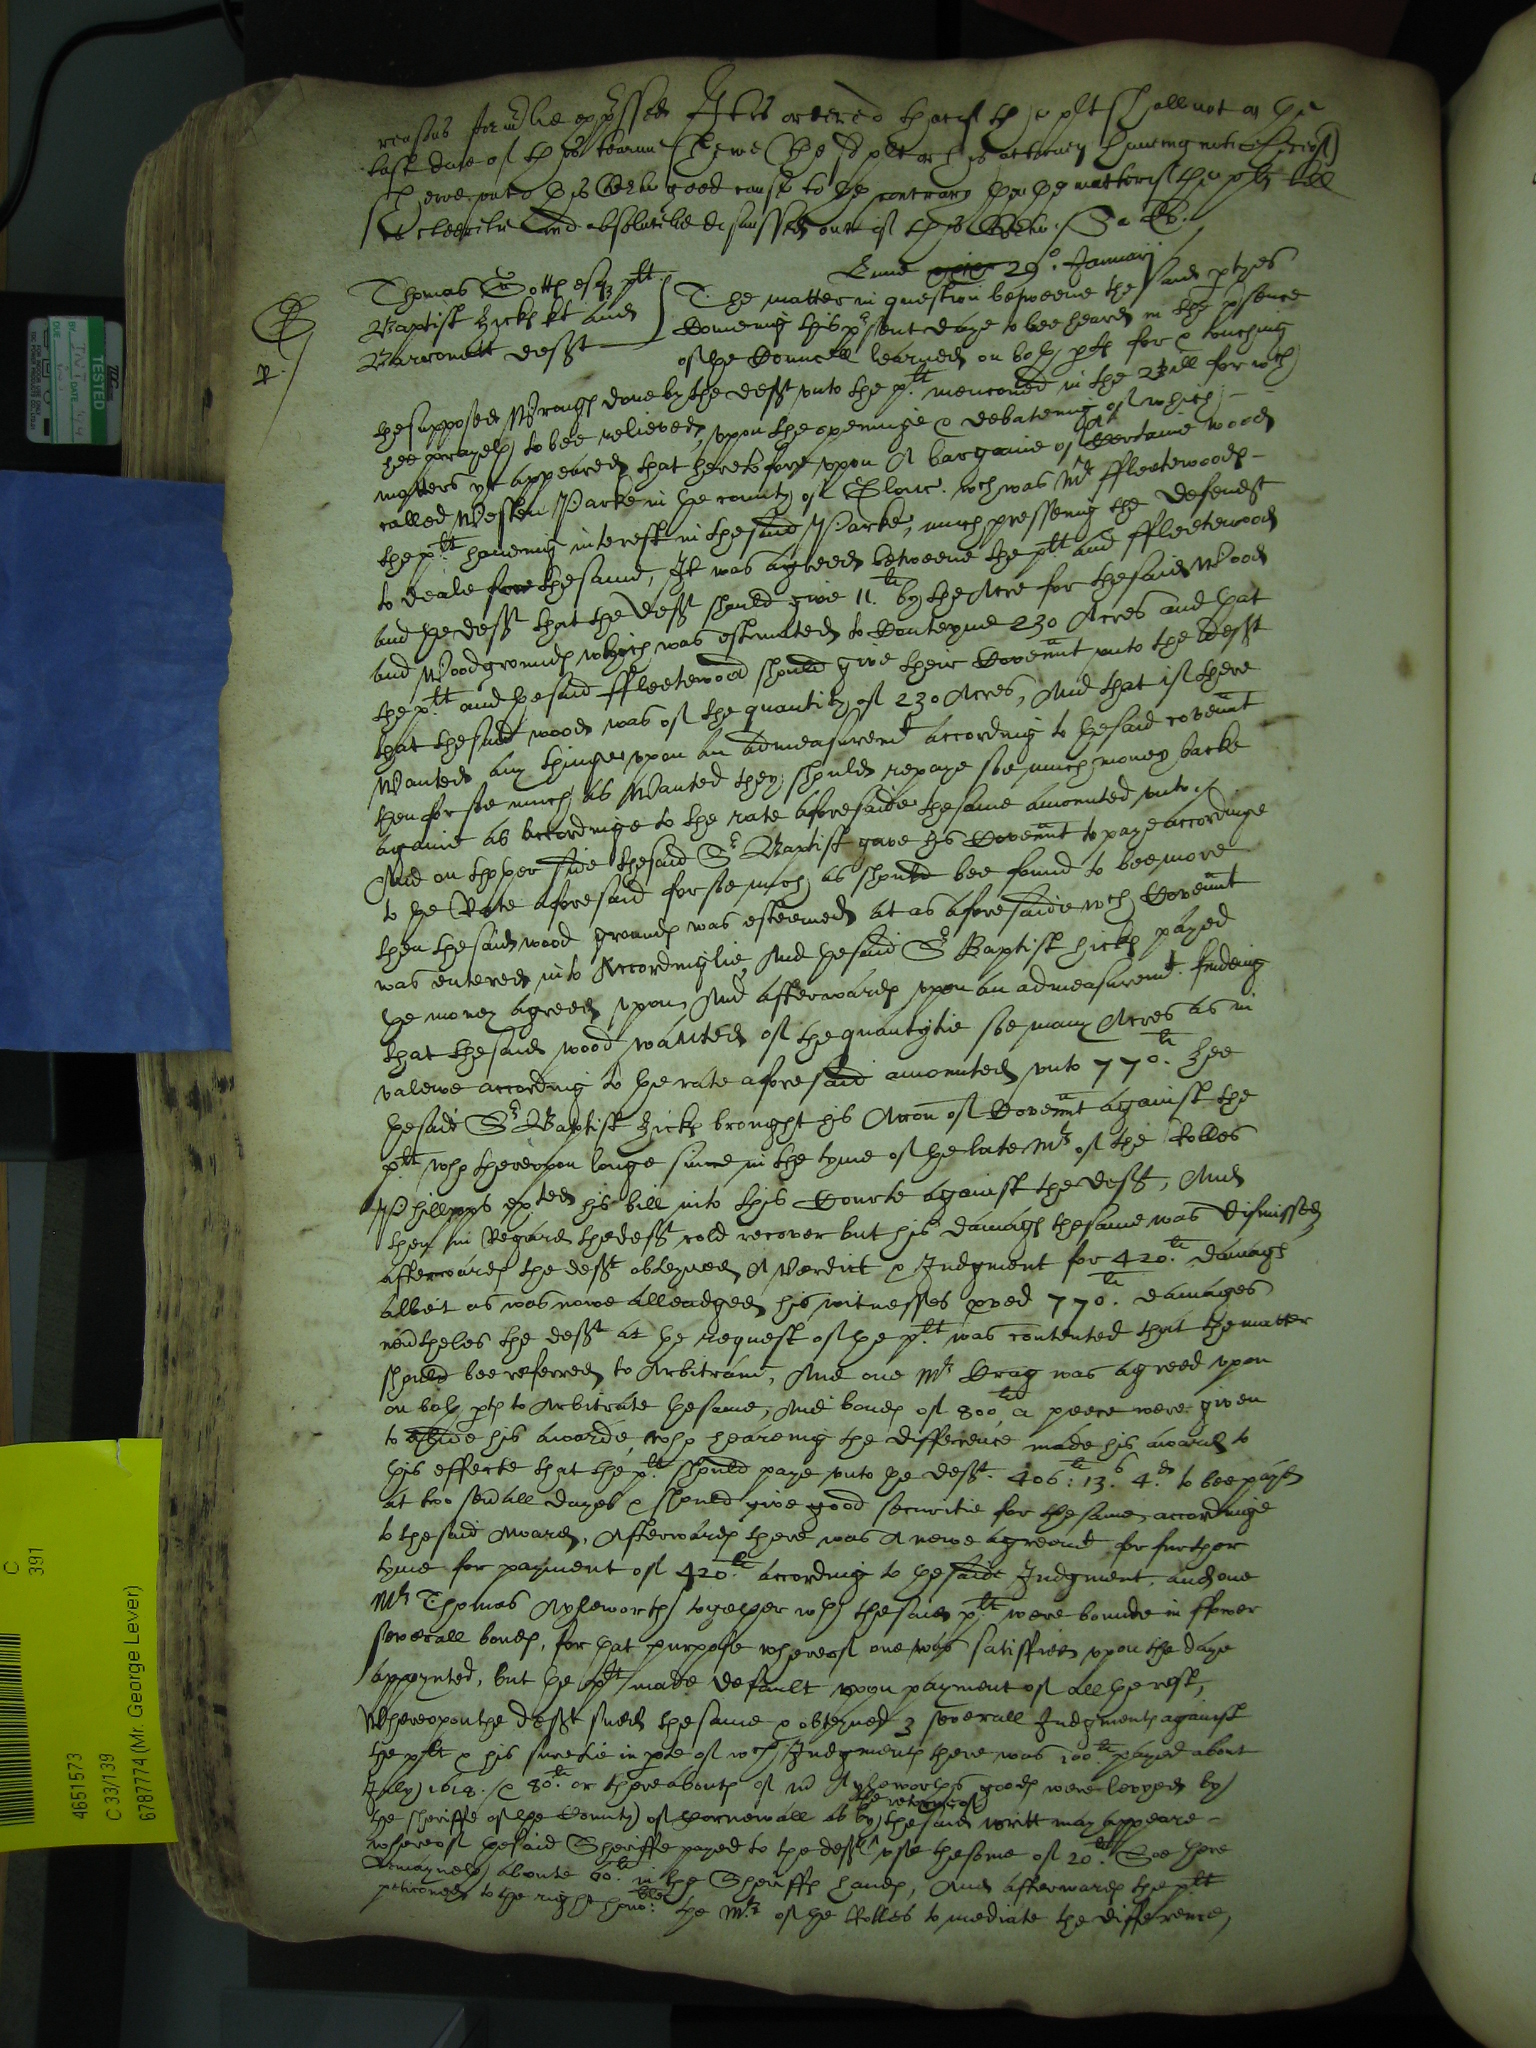 reasons formerlie expressed It is ordered that if the plt shall not on the
last daie of this tearme (the said plt or his attorney haveing notice hereof)
shewe unto this Co:rte good cause to the contrary then the matter of the plts bill
is cleerelie and absolutelie dismissed out of this Co:rte
Lune 29º Januarij
Thomas esqz plt
Baptist Hickes kt and
Barronett defft
The matter in question betweene the said ptyes
Comeinge this pnt daye to bee heard in the psence
of the Councell learned on both ptes for & touching
the supposed Wronges done by the defft unto the plt menconed in the Bill for wch
hee prayeth to bee relieved, upon the openinge & debateinge of which
matters yt appeared that heretofore upon A bargaine of Certaine wood
called Weston Parke in the county of Glouc. wch was Mr Fleetewoodes
the plt haveinge interest in the said Parke, much pressinge the defendt
to deale for the same, It was agreed betweene the plt and ffleetewood
and the defft that the defft should give 11li by the Acre for the said Wood
and Woodgroundes which was estimated to Conteyne 230 Acres and that
the plt and the said ffleetewood should give their Covennt unto the defft
that the said wood was of the quantity of 230 Acres, And that if there
Wanted any thinge upon an admeasuremt according to the said covennt
then for soe much as Wanted they should repaye soe much money backe
againe as accordinge to the rate aforesaide the same amounted unto
And on thother side the said Sr Baptist gave his Covennt to paye accordinge
to the Rate aforesaid for soe much as should bee found to bee more
then the said wood groundes was esteemed at as aforesaide wch Covennt
was entered into Accordinglie, And the said Sr Baptist Hickes payed
the money agreed upon, And afterwardes upon an admeasuremt findeing
that the said wood wanted of the quantytie soe many Acres as in
valewe according to the rate aforesaid amounted unto 770li hee
the said Sr Baptist Hickes brought his Accon of Covennt against the
plt who thereupon longe since in the tyme of the late Mr of the Rolles
Phillipps exhited his bill into this Courte against the defft, And
then in Regard the defft cold recover but his damages the same was dismissed
afterwardes the defft obteyned A Verdict & Judgment for 420li damages
albeit as was nowe alleadged his witnesses pved 770li damages
nevtheles the defft at the request of the plt was contented that the matter
should bee referred to Arbitramt, And one Mr was agreed upon
on both ptes to Arbitrate the same, And bondes of 800li a peece were given
to his awarde, who heareing the difference made his award to
this effecte that the plt should paye unto the defft 406li: 13s 4d to bee payd
at two sevall dayes & should give good securitie for the same accordinge
to the said Award, Afterwardes there was A newe agreemt for further
tyme for payment of 420li according to the said Judgment, and one
Mr Thomas Ayleworth together wth the said plt were bounde in ffower
severall bondes, for that purpose whereof one was satisfied upon the daye
appoynted, but the plt made default upon payment of all the rest,
Whereupon the defft sued the same & obteyned 3 severall Judgmentes against
the plt & his suretie in pte of wch Judgmentes there was 100li payed about
July 1618. & 80li or thereaboutes of Mr Ayleworthes goodes were levyed by
the Sheriffe of the County of Cornewall as by the retorne of the said writt may appeare
whereof the said Sheriffe payed to the deffts use the some of 20li Soe there
Remayneth aboute 60li in the Sheriffes handes, And afterwardes the plt
peticoned to the right honoble: the Mr of the Rolles to mediate the difference,
TESTED
C
391
4651573
C 33/139
6787774 (Mr. George Lever)